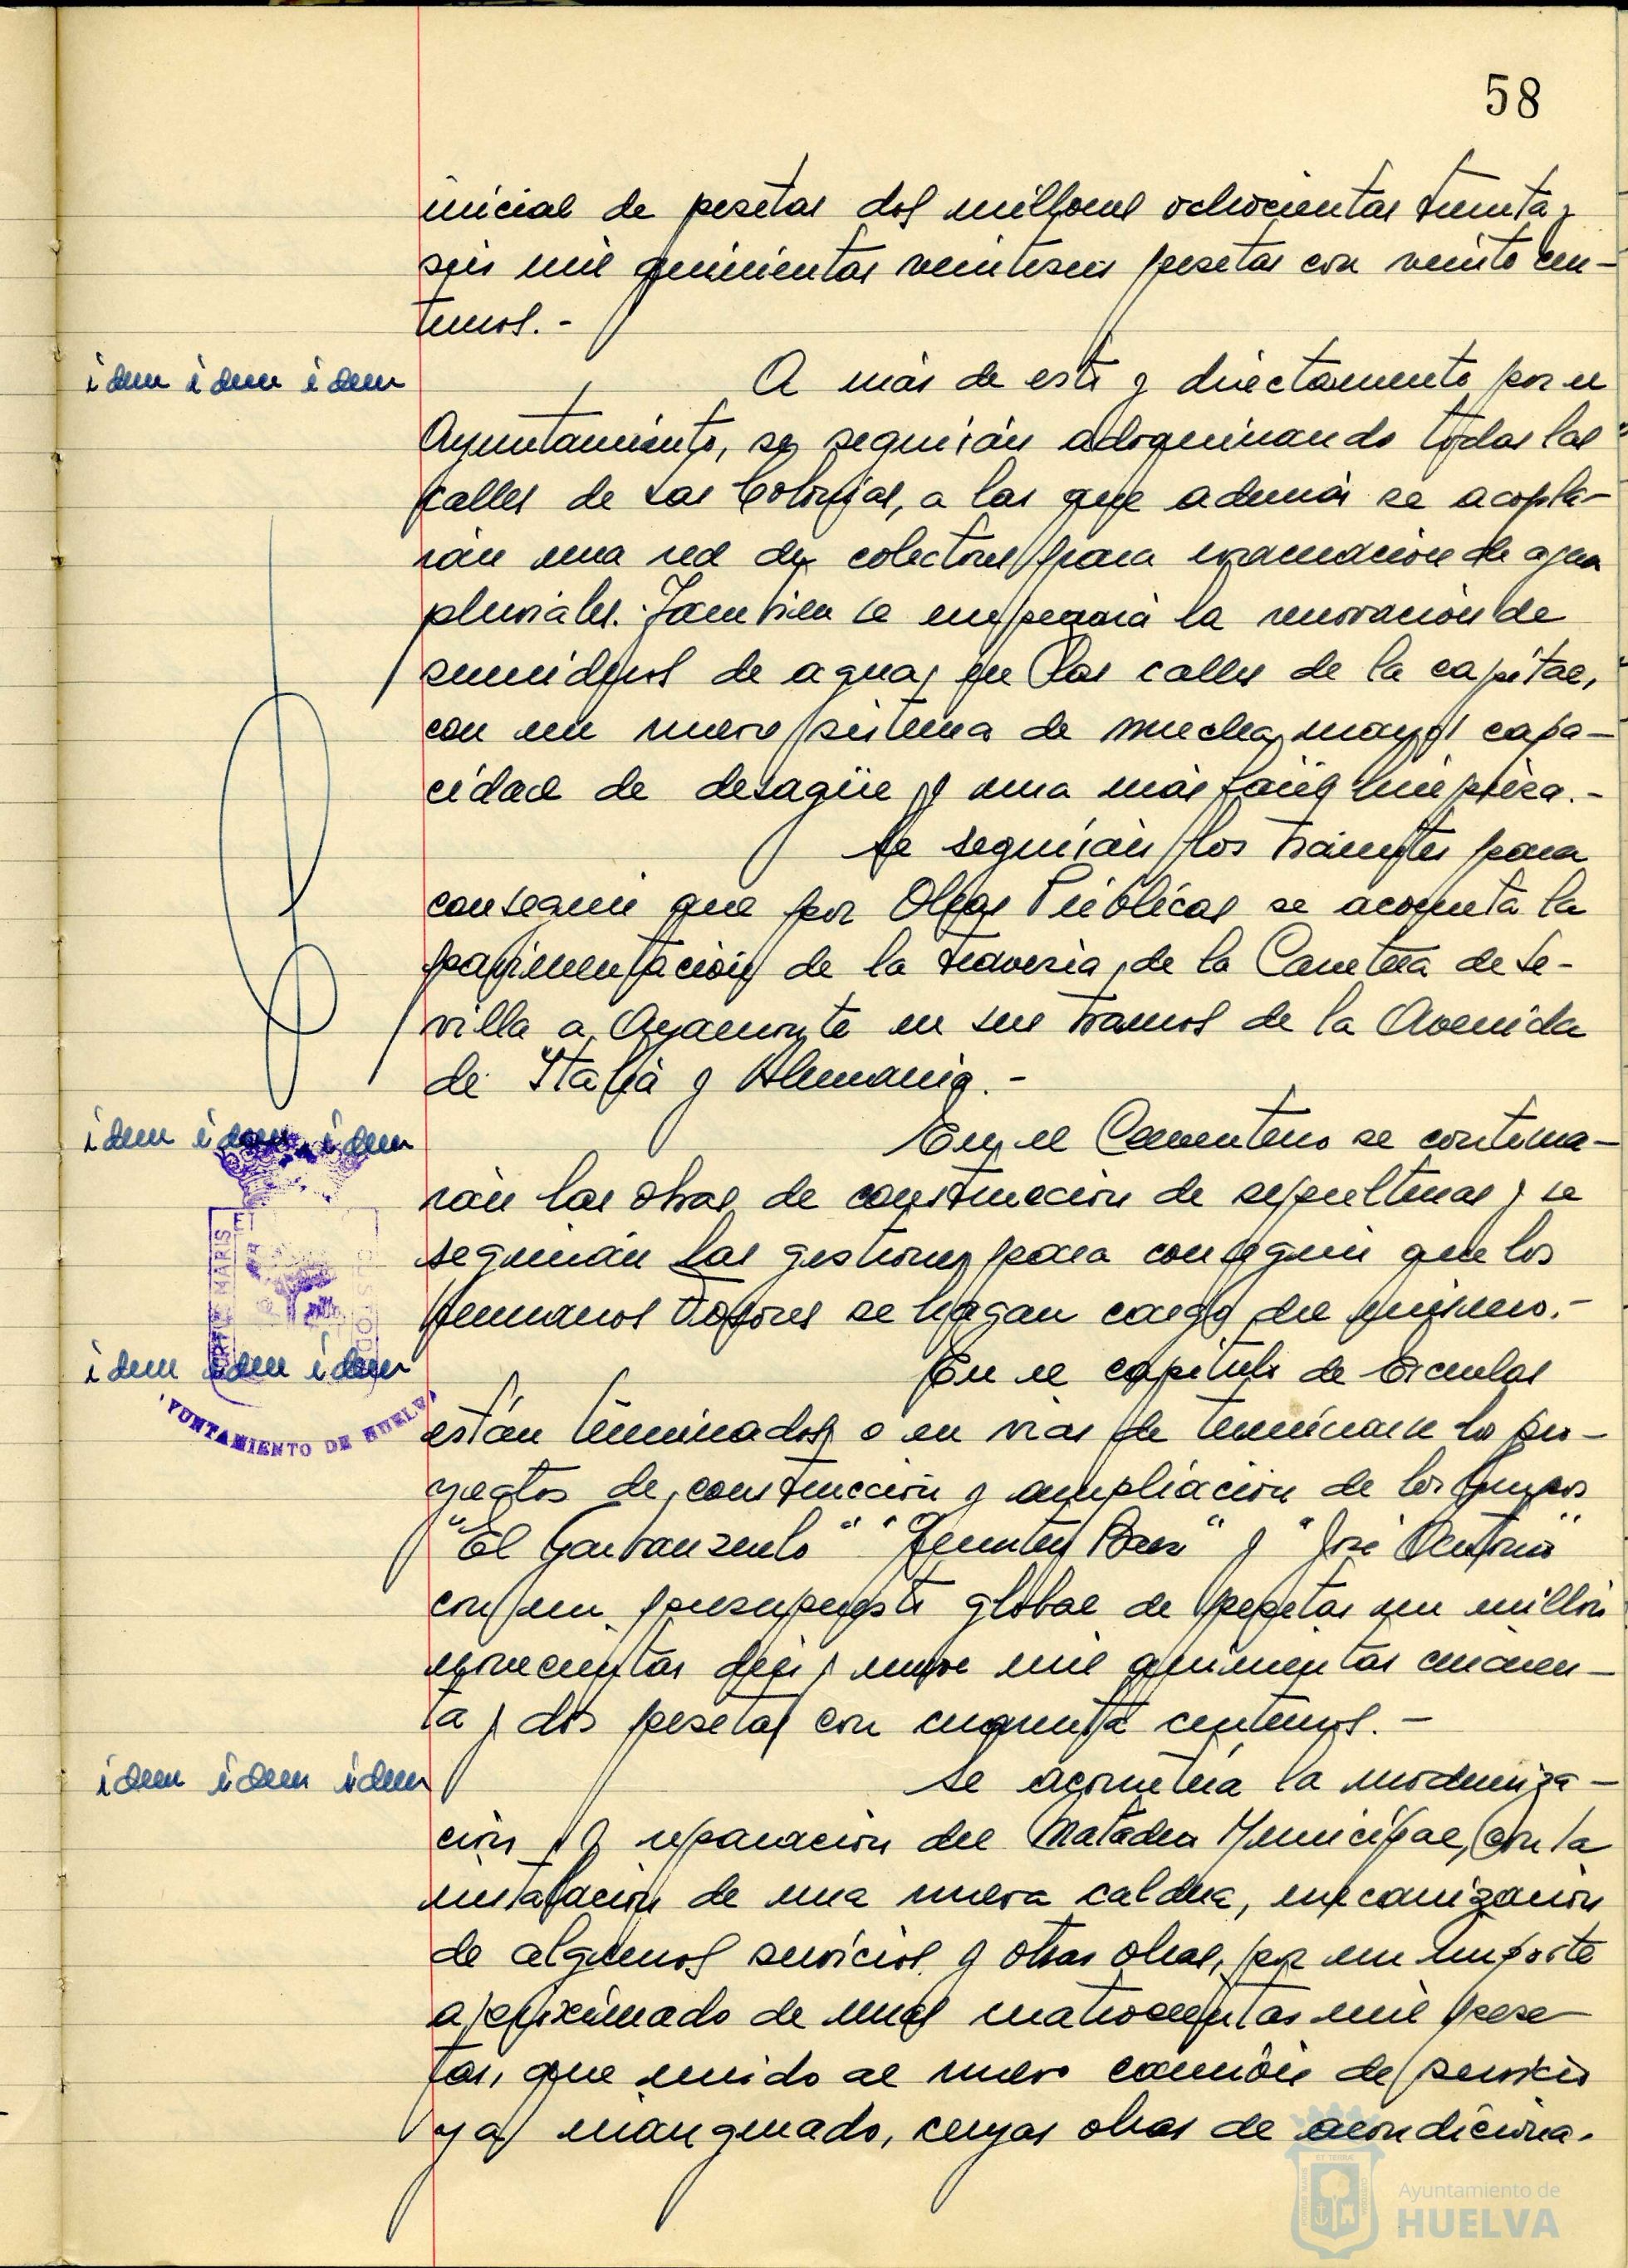 58
inicial de pesetas dos millones ochocientas treinta y
seis mil quinientas veintiseis pesetas con veinte cen-
timos.-
idem idem idem
A más de esto y directamente por el
Ayuntamiento, se seguirán adoquinando todas las
calles de las Colonias, a las que además se acopla-
rán una red de colectores para evacuación de agua
pluviales. Tambien se empezará la renovación de
sumideros de aguas en las calles de la capital,
con un nuevo sistema de mucha mayor capa-
cidad de desagüe y una más fácil limpieza.-
Se seguirán los trámites para
conseguir que por Obras Públicas se acometa la
pavimentación de la travesia de la Carretera de Se-
villa a Ayamonte en sus tramos de la Avenida
de Italia y Alemania.-
idem idem idem
En el Cementerio se continua-
rán las obras de construcción de sepulturas y se
seguirán las gestiones para conseguir que los
Hermanos Fosores se hagan cargo del mismo.-
idem idem idem
En el capítulo de Escuelas
están terminados o en vias de terminarse los pro-
yectos de construcción y ampliación de los Grupos
"El Garbanzuelo" " Báez" y "José Oentonio"
con un presupuesto global de pesetas un millón
novecientas diez y nueve mil quinientas cincuen-
ta y dos pesetas con cincuenta centimos.-
idem idem idem
Se acometerá la moderniza-
ción y reparación del Matadero Municipal, con la
instalación de una nueva caldera, mecanización
de algunos servicios y otras obras, por un importe
aproximado de unas cuatrocientas mil pese-
tas, que unido al nuevo camión de servicio
ya inaugurado, cuyas obras de acondiciona-
PORTUS MARIS ET
CUSTODIA
AYUNTAMIENTO DE HUELVA
Ayuntamiento de
HUELVA